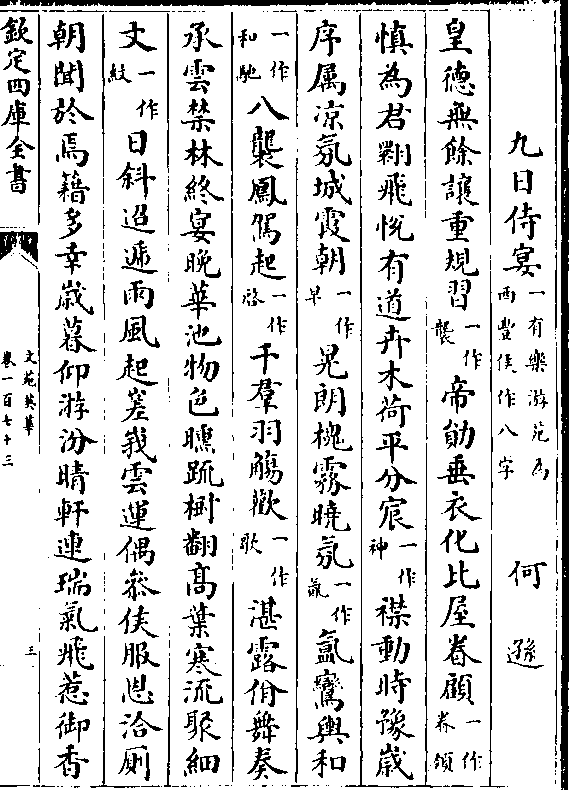 九日侍宴 一有樂游苑為西豐侯作八字 何遜
皇德無餘讓重規習 一作襲 帝勛垂衣化比屋眷顧 一作眷領
慎為君翾飛悅有道卉木荷平分宸 一作神 襟動時豫歲
序屬凉氛城霞朝 一作早 晃朗槐霧曉氛 一作氤 氳鸞輿和
一作和馳 八襲鳳駕起 一作啓 千羣羽觴歡 一作歌 湛露佾舞奏
承雲禁林終宴晚華池物色曛疏樹翻高葉寒流聚細
文 一作紋 日斜迢遞雨風起嵳峩雲運偶叅侯服恩洽厠
朝聞於焉籍多幸歲暮仰游汾晴軒連瑞氣飛惹御香
欽定四庫全書
文苑英華
卷一百七十三
三